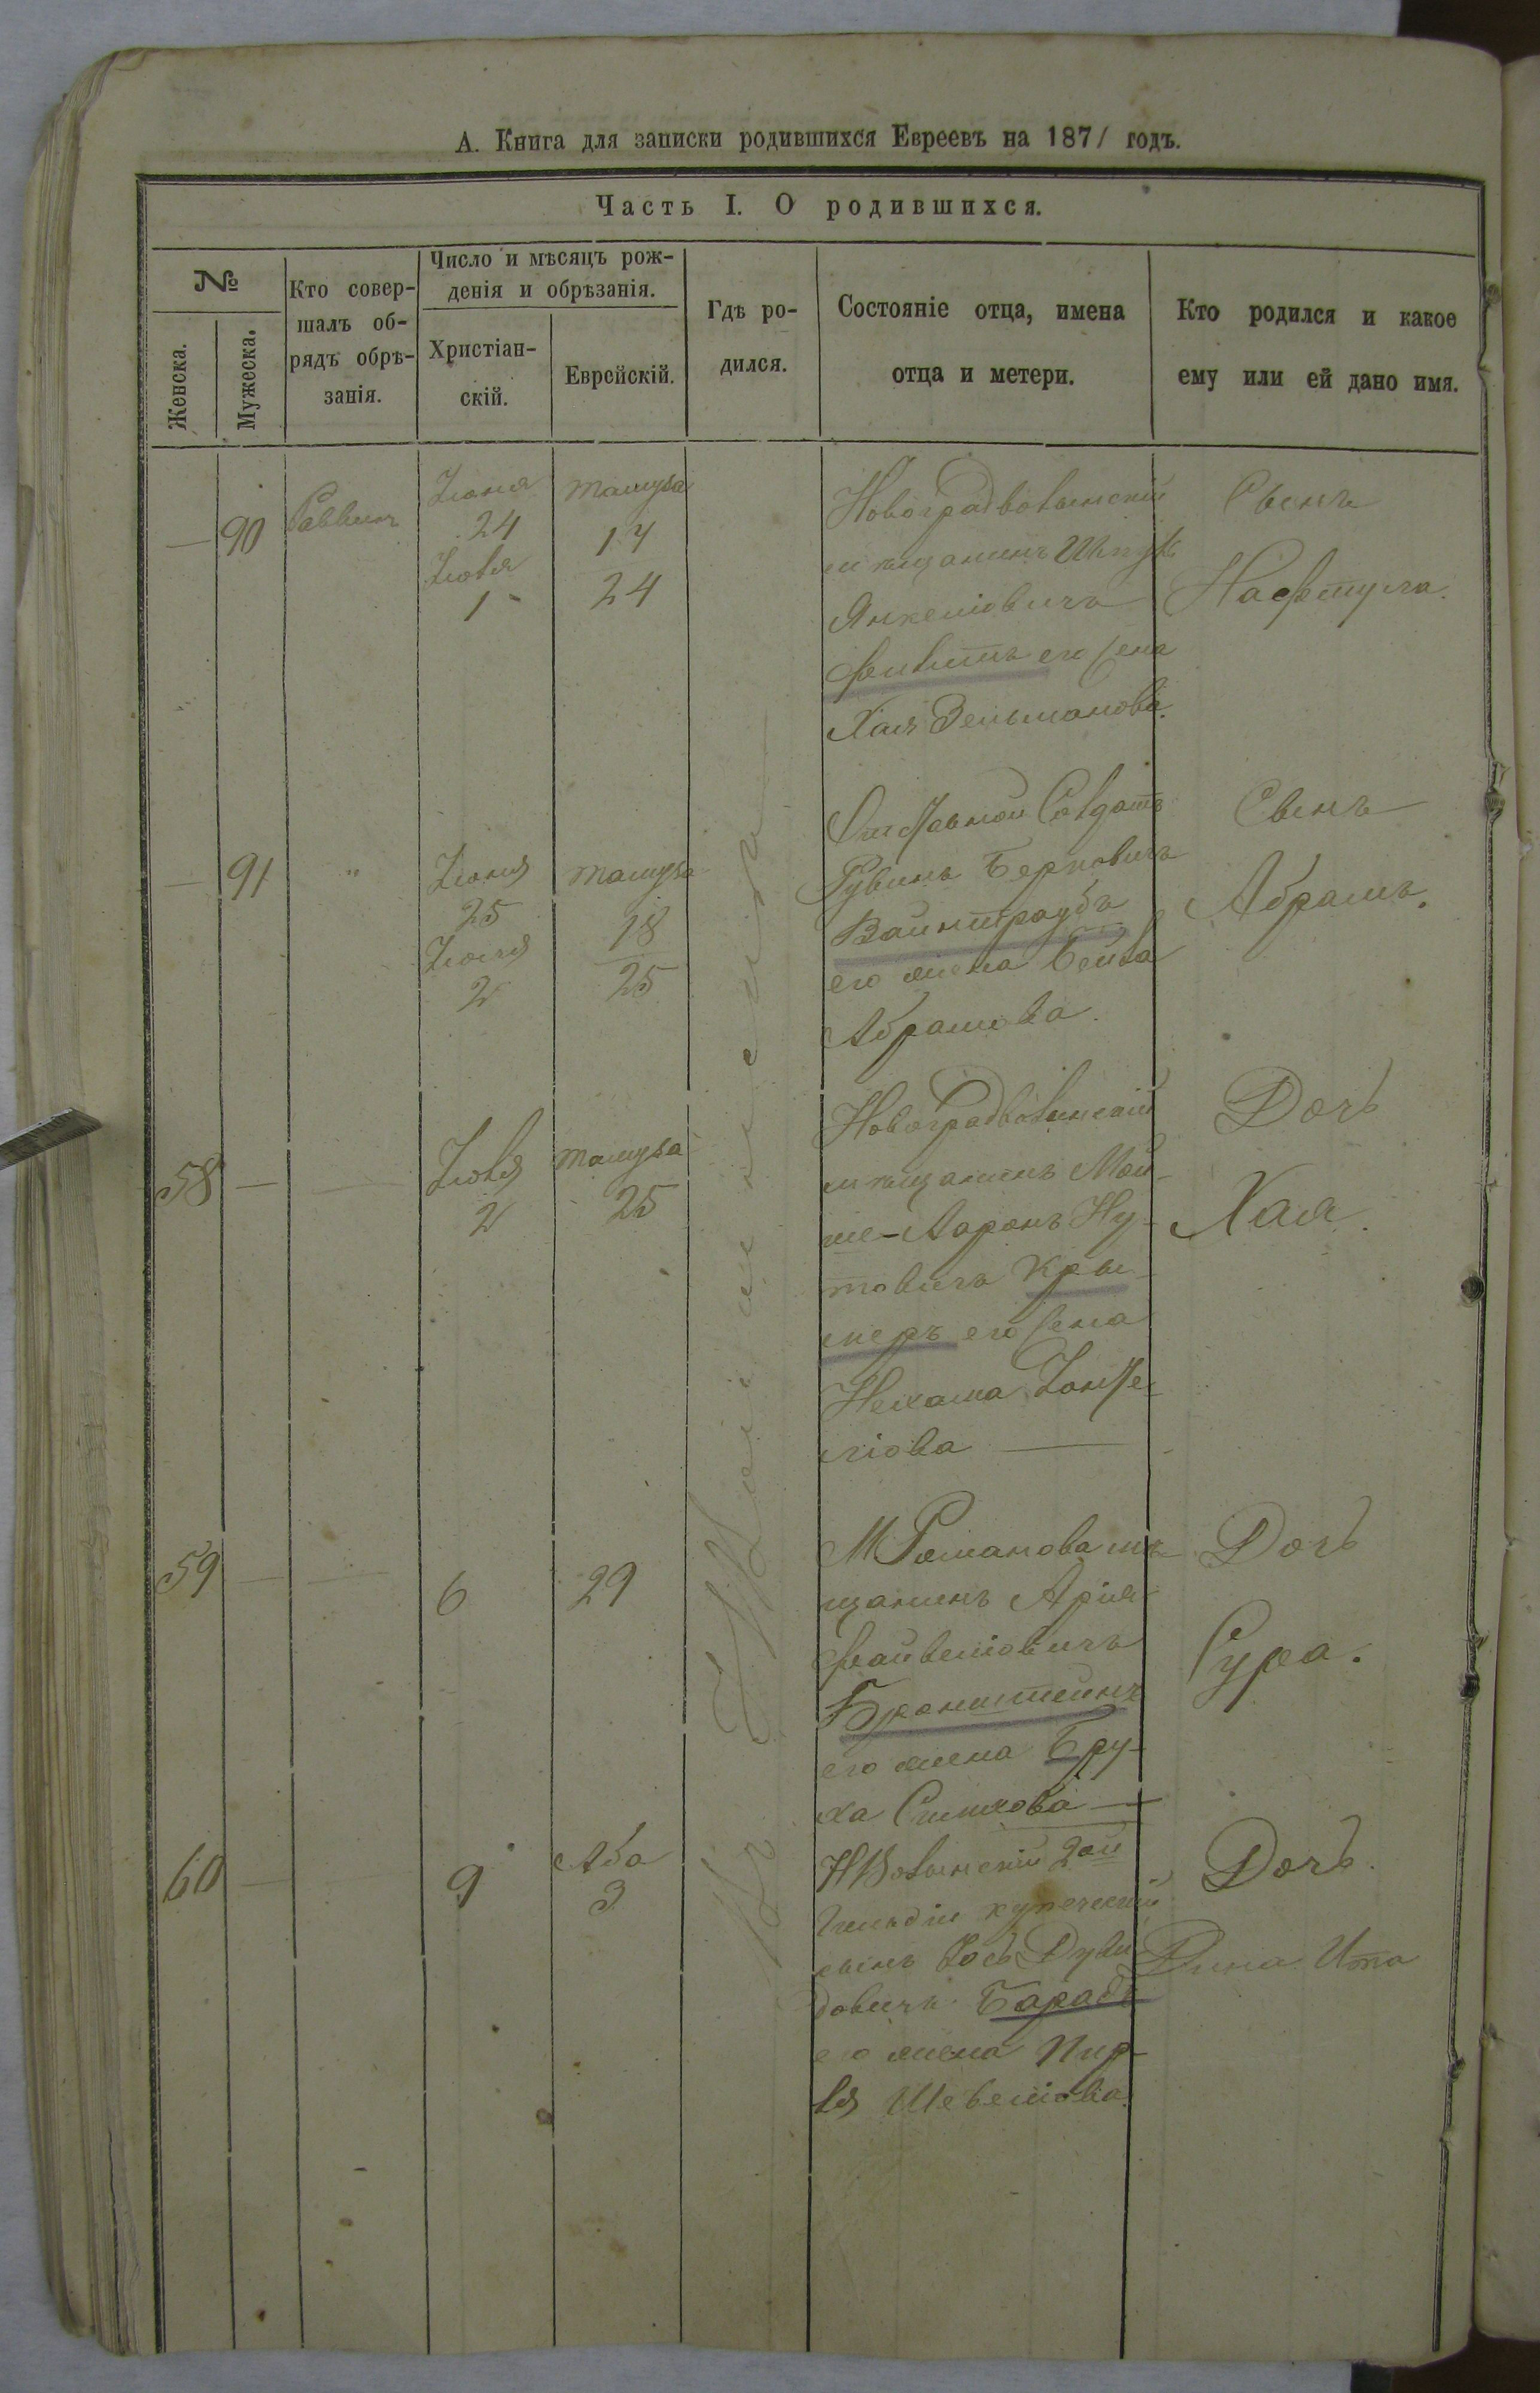 А. Книга для записки родившихся Евреевъ на 1871 годъ.
Часть I. О родившихся.
№
Женска.
Мужеска.
Кто совер-
шалъ об-
рядъ обрѣ-
занія.
Число и мѣсяцъ рож-
денія и обрѣзанія.
Христіан-
скій.
Еврейскій.
Гдѣ ро-
дился.
Состояніе отца, имена
отца и метери.
Кто родился и какое
ему или ей дано имя.
— 90
Раввинъ
Іюня
24
Іюля
1
Тамуза
17
24
Новоградволынскій
мѣщанинъ
Янкеліовичъ
его жена
Хая Зельманова.
Сынъ
Нафтула.
— 91
"
Іюня
25
Іюля
2
Тамуза
18
25
Отставной Солдатъ
Рувинъ Берковичъ
Вайнтраубъ
его жена Бейла
Абрамова.
Сынъ
Абрамъ.
58 — —
Іюля
2
Тамуза
25
Новоградволынскій
мѣщанинъ Мой-
ше-Ааронъ Ну-
товичъ Кры-
меръ его жена
Нехама
ліова —
Дочь
Хая.
59 — —
6
29
М Романова мѣ-
щанинъ Арія
Файвеліовичъ
Бронштейнъ
его жена Бру-
ха Симхова —
Дочь
Сура.
60 — —
9
Аба
3
НВолынскій 2ой
Гильдіи купеческій
сынъ Іось Дуви-
довичъ Барадъ
его жена Пир-
ля
Дочь.
Дина Ита
Въ